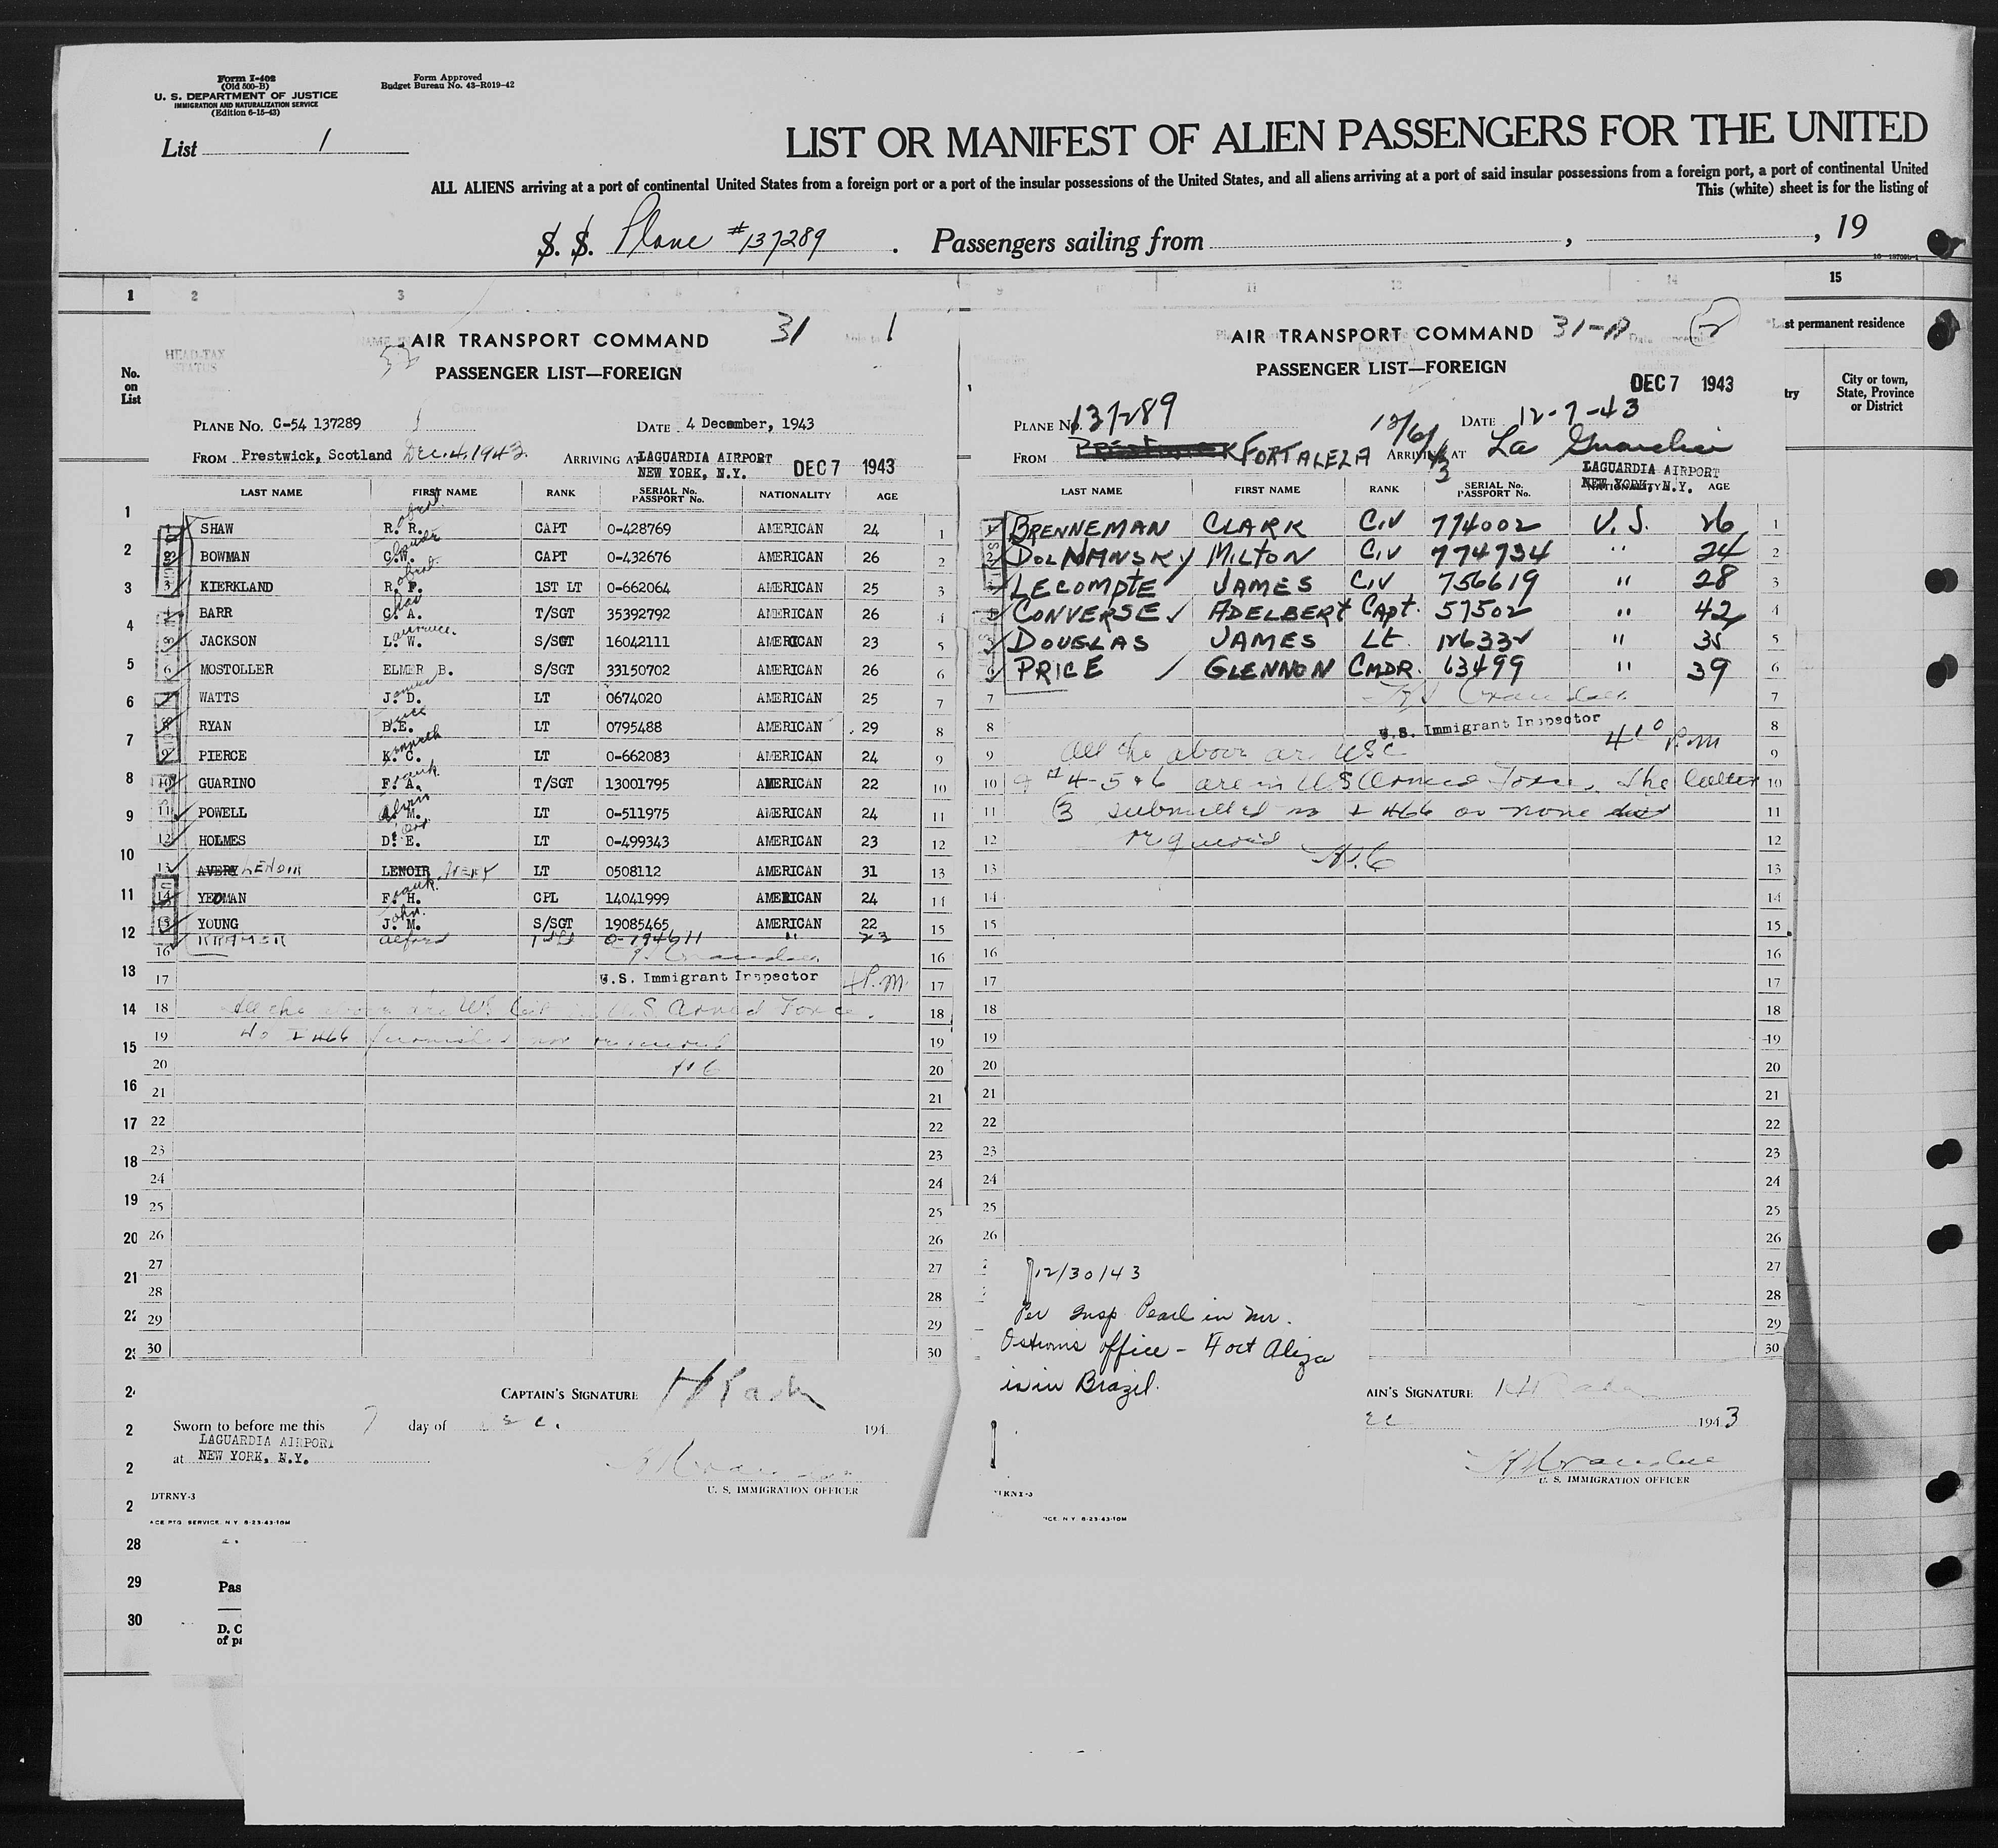 Form I-402
(Old 500-B)
U. S. DEPARTMENT OF JUSTICE
IMMIGRATION AND NATURALIZATION SERVICE
(Edition 6-15-43)
Form Approved
Budget Bureau No. 43-R019-42
List 1
LIST OR MANIFEST OF ALIEN PASSENGERS FOR THE UNITED
ALL ALIENS arriving at a port of continental United States from a foreign port or a port of the insular possessions of the United States, and all aliens arriving at a port of said insular possessions from a foreign port, a port of continental United
This (white) sheet is for the listing of
S. S. Plane #137289 . Passengers sailing from , , 19
1 2 3
No. on List
HEAD-TAX STATUS
AIR TRANSPORT COMMAND 31 1
PASSENGER LIST—FOREIGN
PLANE NO. C-54 137289 DATE 4 December, 1943
FROM Prestwick, Scotland Dec. 4, 1943 ARRIVING AT LAGUARDIA AIRPORT
NEW YORK, N.Y. DEC 7 1943
LAST NAME FIRST NAME RANK SERIAL No. PASSPORT No. NATIONALITY AGE
1 SHAW R. R. CAPT 0-428769 AMERICAN 24 1
2 BOWMAN C.W. CAPT 0-432676 AMERICAN 26 2
3 KIERKLAND R. P. 1ST LT 0-662064 AMERICAN 25 3
4 BARR C. A. T/SGT 35392792 AMERICAN 26 4
5 JACKSON L. W. Lawrence S/SGT 16042111 AMERICAN 23 5
6 MOSTOLLER ELMER B. S/SGT 33150702 AMERICAN 26 6
WATTS J. D. James LT 0674020 AMERICAN 25 7
RYAN B.E. LT 0795488 AMERICAN 29 8
9 PIERCE K. C. Kenneth LT 0-662083 AMERICAN 24 9
10 GUARINO F. A. Frank T/SGT 13001795 AMERICAN 22 10
11 POWELL A. M. Alvin LT 0-511975 AMERICAN 24 11
12 HOLMES D. E. LT 0-499343 AMERICAN 23 12
13 AVERY LENOIR LENOIR AVERY LT 0508112 AMERICAN 31 13
14 YEOMAN F. H. Frank CPL 14041999 AMERICAN 24 14
15 YOUNG J. M. John S/SGT 19085465 AMERICAN 22 15
16 KRAMER Alford 1st Lt 0-794611 " 23 16
17 U.S. Immigrant Inspector P.M. 17
18 All the above are US Cit in U.S Armed Force. 18
19 No I 466 furnished nor required 19
20 20
21 21
22 22
23 23
24 24
25 25
26 26
27 27
28 28
29 29
30 30
CAPTAIN'S SIGNATURE
Sworn to before me this 7 day of Dec. 194
at LAGUARDIA AIRPORT
NEW YORK, N.Y.
U. S. IMMIGRATION OFFICER
DTRNY-3
ACE PTG. SERVICE. N.Y. 8-23-43-10M
28
29
30
Pas
D. C
of pa
AIR TRANSPORT COMMAND 31-A 2
PASSENGER LIST—FOREIGN
DEC 7 1943
PLANE NO. 137289 DATE 12-7-43
FROM FORTALEZA 12/6/43 ARRIVING AT La Guardia
LAGUARDIA AIRPORT
NEW YORK, N.Y.
LAST NAME FIRST NAME RANK SERIAL No. PASSPORT No. NATIONALITY AGE
1 BRENNEMAN CLARK CIV 774002 U.S. 26 1
2 DOLMANSKY MILTON CIV 774734 " 24 2
LECOMPTE JAMES CIV 756619 " 28 3
CONVERSE ADELBERT Capt. 57502 " 42 4
DOUGLAS JAMES Lt 126332 " 35 5
PRICE GLENNON CMDR. 63499 " 39 6
7 7
8 U.S. Immigrant Inspector 4 10 P.M 8
9 All the above are USC 9
10 #4-5&6 are in US Armed Force. The latter 10
11 3 submitted no I 466 as none 11
12 required 12
13 13
14 14
15 15
16 16
17 17
18 18
19 19
20 20
21 21
22 22
23 23
24 24
25 25
26 26
27
28
29
30
12/30/43
Per Insp Pearl in Mr.
Ostrom's office - Fort Aliza
is in Brazil.
AIN'S SIGNATURE
1943
U. S. IMMIGRATION OFFICER
TRNY-3
ICE. N.Y. 8-23-43-10M
15
*Last permanent residence
try
City or town, State, Province or District